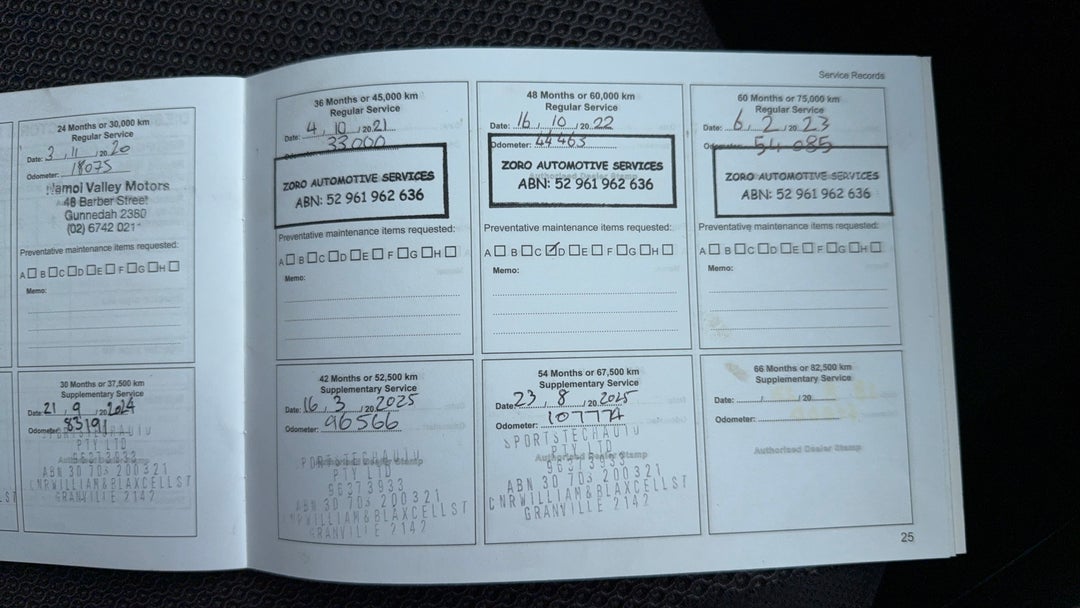 Service Records
24 Months or 30,000 km
Regular Service
Date: 3 / 11 / 20 20
Odometer: 18075
Namoi Valley Motors
48 Barber Street
Gunnedah 2380
(02) 6742 021
Preventative maintenance items requested:
A B C D E F G H
Memo:
36 Months or 45,000 km
Regular Service
Date: 4 / 10 / 20 21
Odometer: 33000
ZORO AUTOMOTIVE SERVICES
ABN: 52 961 962 636
Preventative maintenance items requested:
A B C D E F G H
Memo:
48 Months or 60,000 km
Regular Service
Date: 16 / 10 / 20 22
Odometer: 44463
ZORO AUTOMOTIVE SERVICES
ABN: 52 961 962 636
Preventative maintenance items requested:
A B C D E F G H
Memo:
60 Months or 75,000 km
Regular Service
Date: 6 / 2 / 20 23
Odometer: 54085
ZORO AUTOMOTIVE SERVICES
ABN: 52 961 962 636
Preventative maintenance items requested:
A B C D E F G H
Memo:
30 Months or 37,500 km
Supplementary Service
Date: 21 / 9 / 20 2024
Odometer: 83191
SPORTSTECHAUTO
PTY LTD
Authorised Dealer Stamp
96373933
ABN 30 703 200321
CNRWILLIAM&BLAXCELLST
GRANVILLE 2142
42 Months or 52,500 km
Supplementary Service
Date: 16 / 3 / 20 2025
Odometer: 96566
SPORTSTECHAUTO
Authorised Dealer Stamp
PTY LTD
96373933
ABN 30 703 200321
CNRWILLIAM&BLAXCELLST
GRANVILLE 2142
54 Months or 67,500 km
Supplementary Service
Date: 23 / 8 / 20 2025
Odometer: 107774
SPORTSTECHAUTO
PTY LTD
Authorised Dealer Stamp
96373933
ABN 30 703 200321
CNRWILLIAM&BLAXCELLST
GRANVILLE 2142
66 Months or 82,500 km
Supplementary Service
Date: / / 20
Odometer:
Authorised Dealer Stamp
25